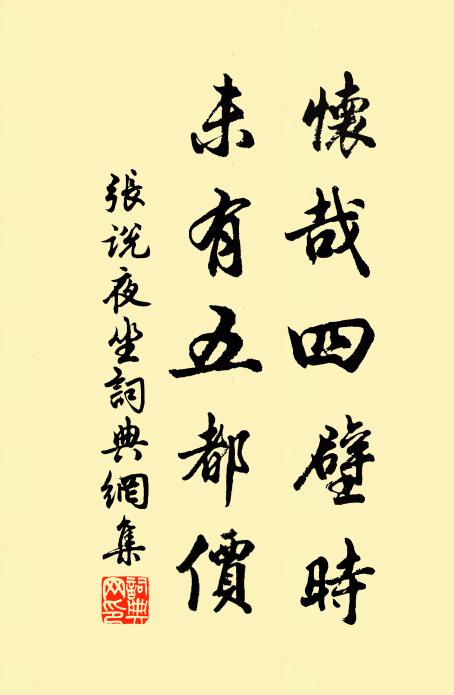 懷哉四壁時
未有五都價
張说夜坐詞典網集
詞典網印